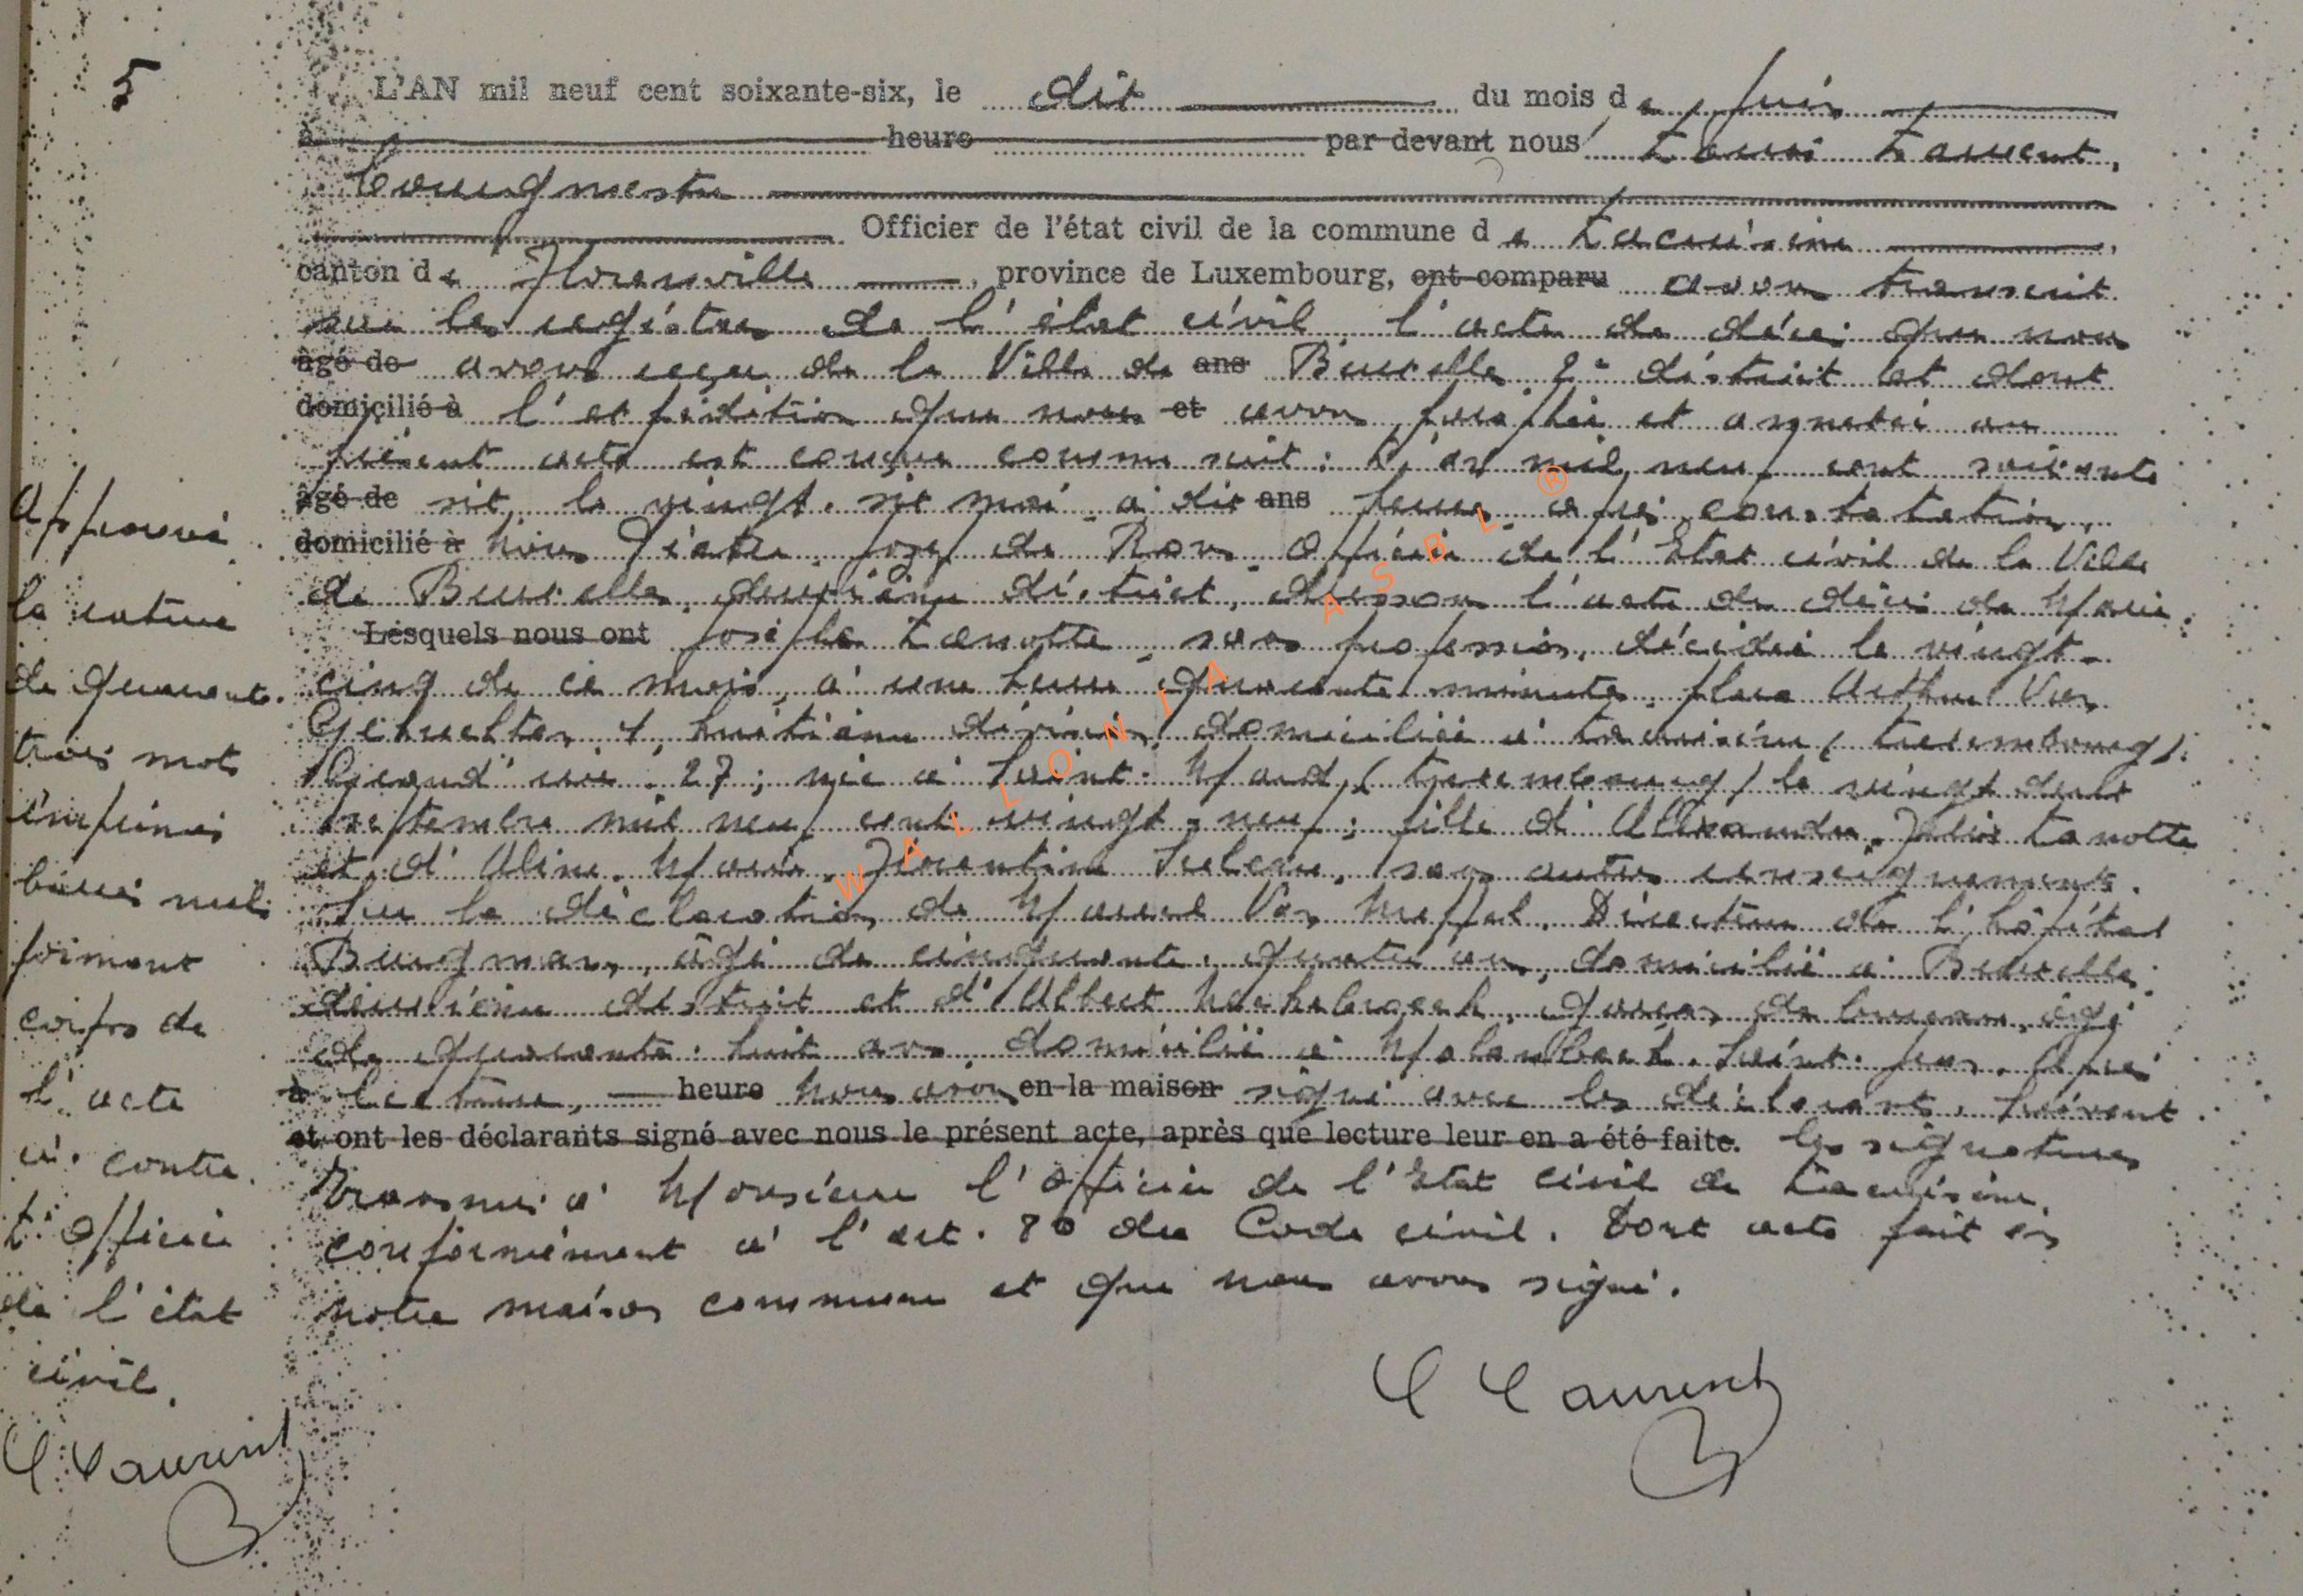 5
L'AN mil neuf cent soixante-six, le dix du mois de Juin
à heure par devant nous Louis Laurent,
bourgmestre
Officier de l'état civil de la commune de Lacuisine
canton de Florenville, province de Luxembourg, ont comparu avons transcrit
sur les registres de l'état civil l'acte de décès que nous
âgé de avons reçu de la Ville de ans Bruxelles 2e district et dont
domicilié à l'expédition que nous et avons paraphée et annexée au
présent acte est conçue comme suit : L'an mil neuf cent soixante
âgé de six, le vingt-six mai à dix ans heures après constatation,
domicilié à Nous Pierre de Rons Officier de l'Etat civil de la Ville
de Bruxelles, deuxième district, dressons l'acte de décès de Marie
Lesquels nous ont Josépha Lanotte, sans profession, décédée le vingt-
cinq de ce mois, à une heure quarante minutes place Arthur Van
Gehuchten, 4, huitième division, domiciliée à Lacuisine (Luxembourg),
Grand'rue 27 ; née à Saint-Mard, (Luxembourg) le vingt deux
septembre mil neuf cent vingt-neuf ; fille d'Alexandre Lanotte
et d'Aline, Marie, Florentine sans autres renseignements.
Sur la déclaration de Marcel Van Directeur de l'hôpital
Brugmann, âgé de cinquante-quatre ans, domicilié à Bruxelles
deuxième district et d'Albert garçon de bureau, âgé
de quarante-huit ans, domicilié à Molenbeek-Saint-Jean. Après
à lecture, heure Nous avons en la maison signé avec les déclarants. Suivent
et ont les déclarants signé avec nous le présent acte, après que lecture leur en a été faite. les signatures
Transmis à Monsieur l'Officier de l'Etat civil de Lacuisine
conformément à l'art. 80 du Code civil. Dont acte fait en
notre maison commune et que nous avons signé.
L Laurent
Approuvé
la rature
de quarante-
trois mots
imprimés
biffés nuls
formant
corps de
l'acte
ci-contre.
L'officier
de l'état
civil.
L Laurent
WALLONIA ASBL ®